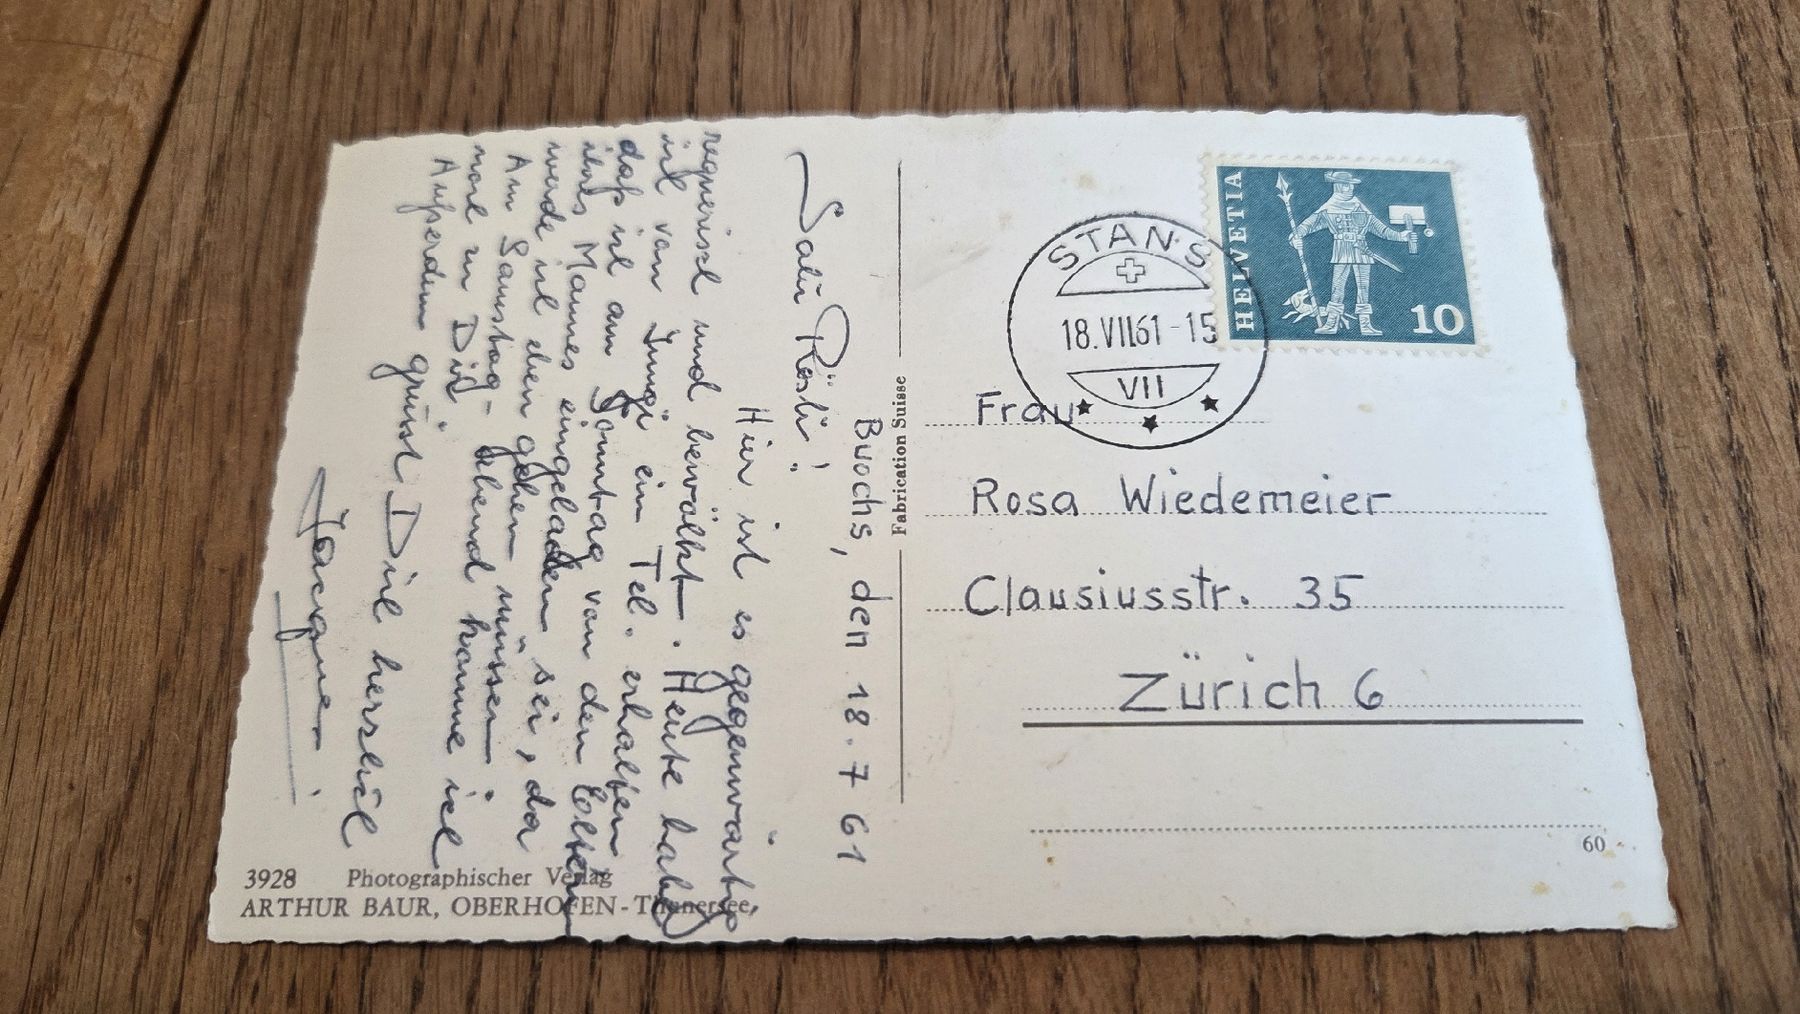 Buochs, den 18.7.61
Salü Rösli!
Hier ist es gegenwärtig
regnerisch und bewölkt. Heute habe
ich von ein Tel. erhalten
daß ich am Sonntag von den Eltern
ihres Mannes eingeladen sei, da
werde ich eben gehen müssen.
Am Samstag-abend komme ich
noch zu Dir.
Außerdem grüsst Dich herzlich
HELVETIA
10
STANS
18.VII.61-15
VII
Frau
Rosa Wiedemeier
Clausiusstr. 35
Zürich 6
Fabrication Suisse
60
3928 Photographischer Verlag
ARTHUR BAUR, OBERHOFEN-Thunersee